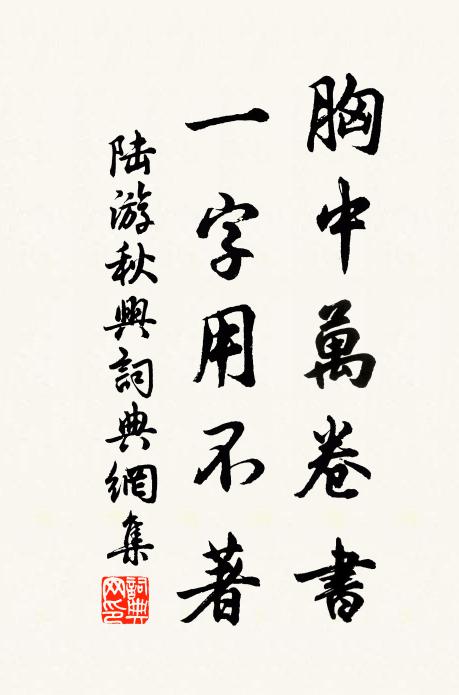 胸中萬卷書
一字用不著
陸游秋興詞典網集
詞典網印